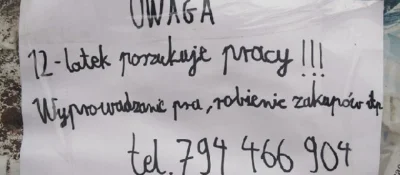 UWAGA
12-latek poszukuje pracy!!!
Wyprowadzanie psa, robienie zakupów itp.
tel. 794 466 904